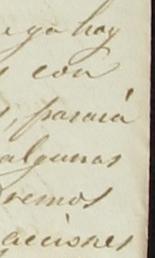 ya hay
con
pasará
algunas
remos
aciones